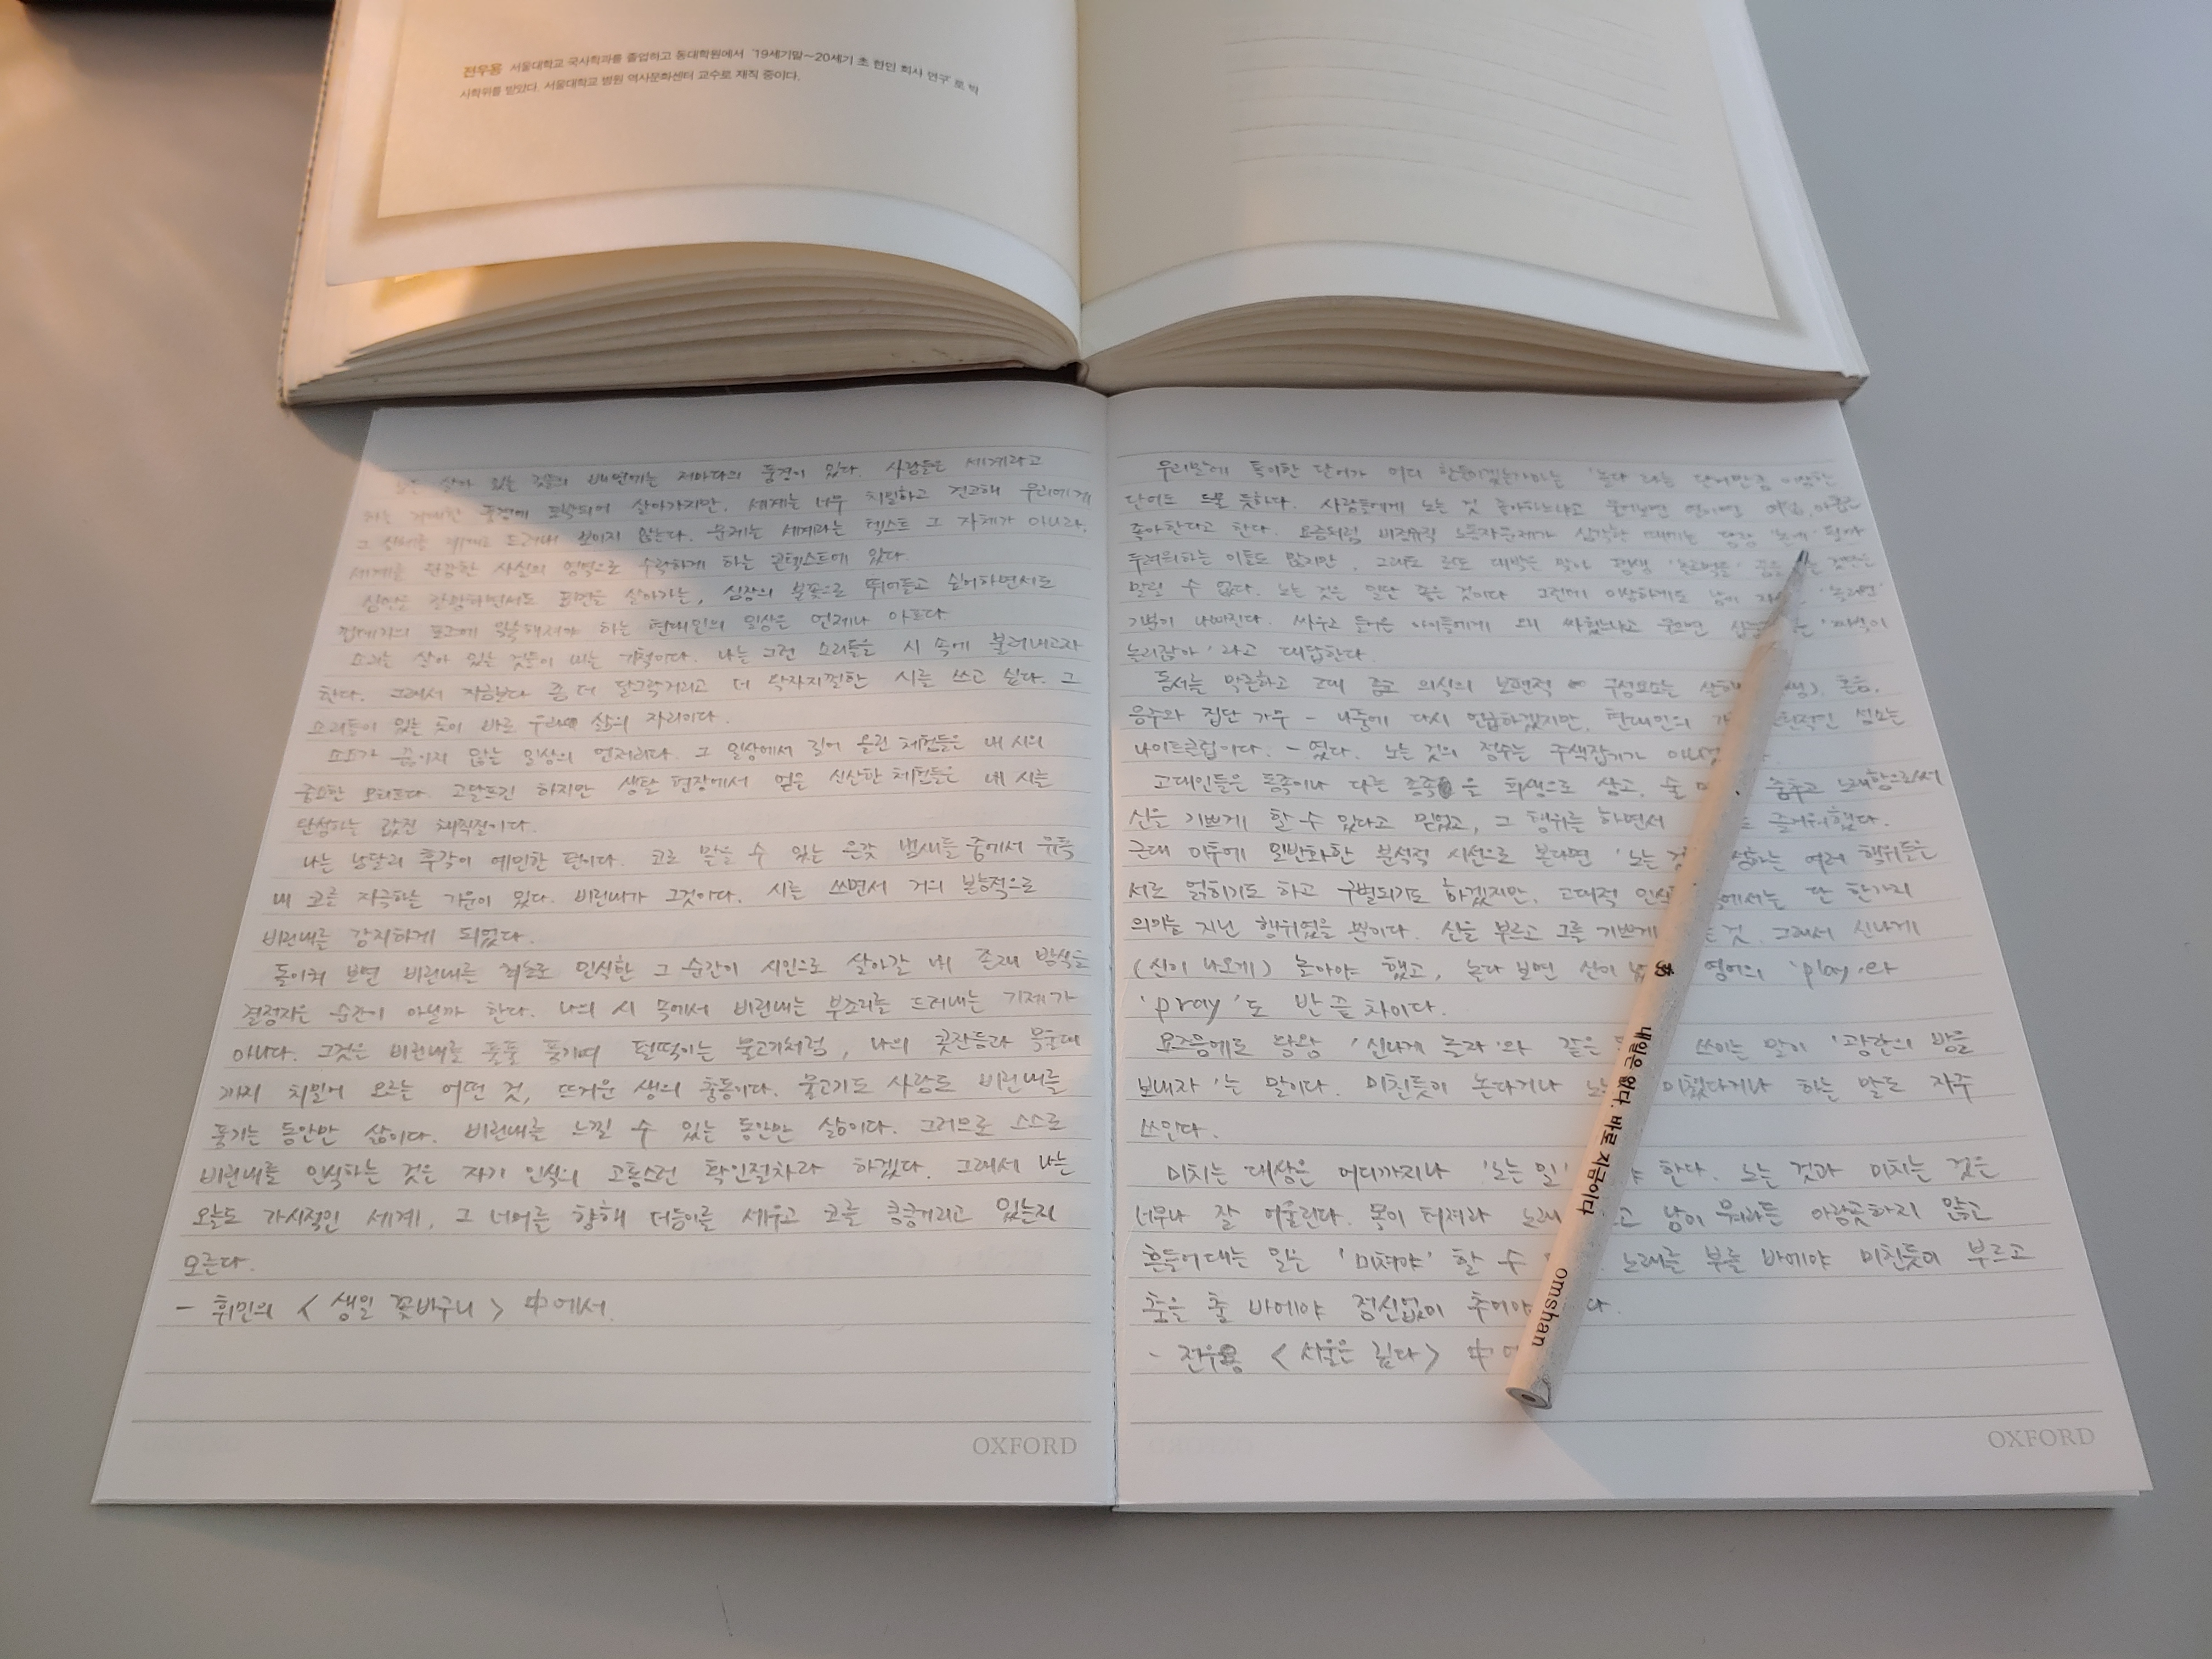 전우용 서울대학교 국사학과를 졸업하고 동대학원에서 '19세기말~20세기 초 한인 회사 연구'로 박
사학위를 받았다. 서울대학교 병원 역사문화센터 교수로 재직 중이다.
살아 있는 것들의 배면에는 저마다의 풍경이 있다. 사람들은 세계라고
하는 거대한 풍경에 포박되어 살아가지만, 세계는 너무 치밀하고 견고해 우리에게
그 실체를 제대로 드러내 보이지 않는다. 문제는 세계라는 텍스트 그 자체가 아니라,
세계를 단단한 사실의 영역으로 수락하게 하는 콘텍스트에 있다.
심연을 갈망하면서도 표면을 살아가는, 심장의 불꽃으로 뛰어들고 싶어하면서도
껍데기의 포즈에 익숙해져야 하는 현대인의 일상은 언제나 아프다
소리는 살아 있는 것들이 내는 기척이다. 나는 그런 소리들을 시 속에 불러내고자
한다. 그래서 지금보다 좀 더 달그락거리고 더 왁자지껄한 시를 쓰고 싶다. 그
소리들이 있는 곳이 바로 우리의 삶의 자리이다.
포즈가 끊이지 않는 일상의 언저리다. 그 일상에서 길어 올린 체험들은 내 시의
중요한 모티프다. 고달프긴 하지만 생활 현장에서 얻은 신산한 체험들은 내 시를
단련하는 값진 채찍질이다.
나는 남달리 후각이 예민한 편이다. 코로 맡을 수 있는 온갖 냄새들 중에서 유독
내 코를 자극하는 기운이 있다. 비린내가 그것이다. 시를 쓰면서 거의 본능적으로
비린내를 감지하게 되었다.
돌이켜 보면 비린내를 최초로 인식한 그 순간이 시인으로 살아갈 내 존재 방식을
결정지은 순간이 아닐까 한다. 나의 시 속에서 비린내는 부조리를 드러내는 기제가
아니다. 그것은 비린내를 풀풀 풍기며 펄떡이는 물고기처럼, 나의 곳잔등과 목울대
까지 치밀어 오르는 어떤 것, 뜨거운 생의 충동이다. 물고기도 사람도 비린내를
풍기는 동안만 삶이다. 비린내를 느낄 수 있는 동안만 삶이다. 그러므로 스스로
비린내를 인식하는 것은 자기 인식의 고통스런 확인절차라 하겠다. 그래서 나는
오늘도 가시적인 세계, 그 너머를 향해 더듬이를 세우고 코를 킁킁거리고 있는지
모른다.
- 휘민의 < 생일 꽃바구니 > 中에서.
우리말에 특이한 단어가 어디 한둘이겠는가마는 '놀다'라는 단어만큼 이상한
단어도 드물 듯하다. 사람들에게 노는 것 좋아하느냐고 물어보면 열이면 여덟, 아홉은
좋아한다고 한다. 요즘처럼 비정규직 노동자문제가 심각한 때에는 당장 '놀게' 될까
두려워하는 이들도 많지만, 그래도 로또 대박을 맞아 평생 '놀고먹을' 꿈을 꾸는 것만은
말릴 수 없다. 노는 것은 일단 좋은 것이다 그런데 이상하게도 남이 자기를 '놀리면'
기분이 나빠진다. 싸우고 들어온 아이들에게 왜 싸웠느냐고 물으면 '쟤가
놀리잖아'라고 대답한다.
동서를 막론하고 고대 종교 의식의 보편적 구성요소는 살해 혼음,
음주와 집단 가무 - 나중에 다시 언급하겠지만, 현대인의 성소는
나이트클럽이다. - 였다. 노는 것의 정수는 주색잡기가 아니었
고대인들은 동족이나 다른 종족을 희생으로 삼고, 술 춤추고 노래함으로써
신을 기쁘게 할 수 있다고 믿었고, 그 행위를 하면서 도 즐거워했다.
근대 이후에 일반화한 분석적 시선으로 본다면 '노는 것 여러 행위들은
서로 얽히기도 하고 구별되기도 하겠지만, 고대적 인식 에서는 단 한가지
의미를 지닌 행위였을 뿐이다. 신을 부르고 그를 기쁘게 는 것. 그래서 신나게
(신이 나오게) 놀아야 했고, 놀다 보면 신이 영어의 'play'와
'pray'도 반 끝 차이다.
요즈음에도 왕왕 '신나게 놀자'와 같은 쓰이는 말이 '광란의 밤을
보내자'는 말이다. 미친듯이 논다거나 미쳤다거나 하는 말도 자주
쓰인다.
미치는 대상은 어디까지나 '노는 일' 한다. 노는 것과 미치는 것은
너무나 잘 어울린다. 목이 터져라 노래 고 남이 뭐라든 아랑곳하지 않고
흔들어대는 일은 '미쳐야' 할 수 노래를 부를 바에야 미친듯이 부르고
춤을 출 바에야 정신없이 추어야 다.
- 전우용 < 서울은 깊다 > 中
내일은 없다. 바로 지금이다
omshan
OXFORD
OXFORD